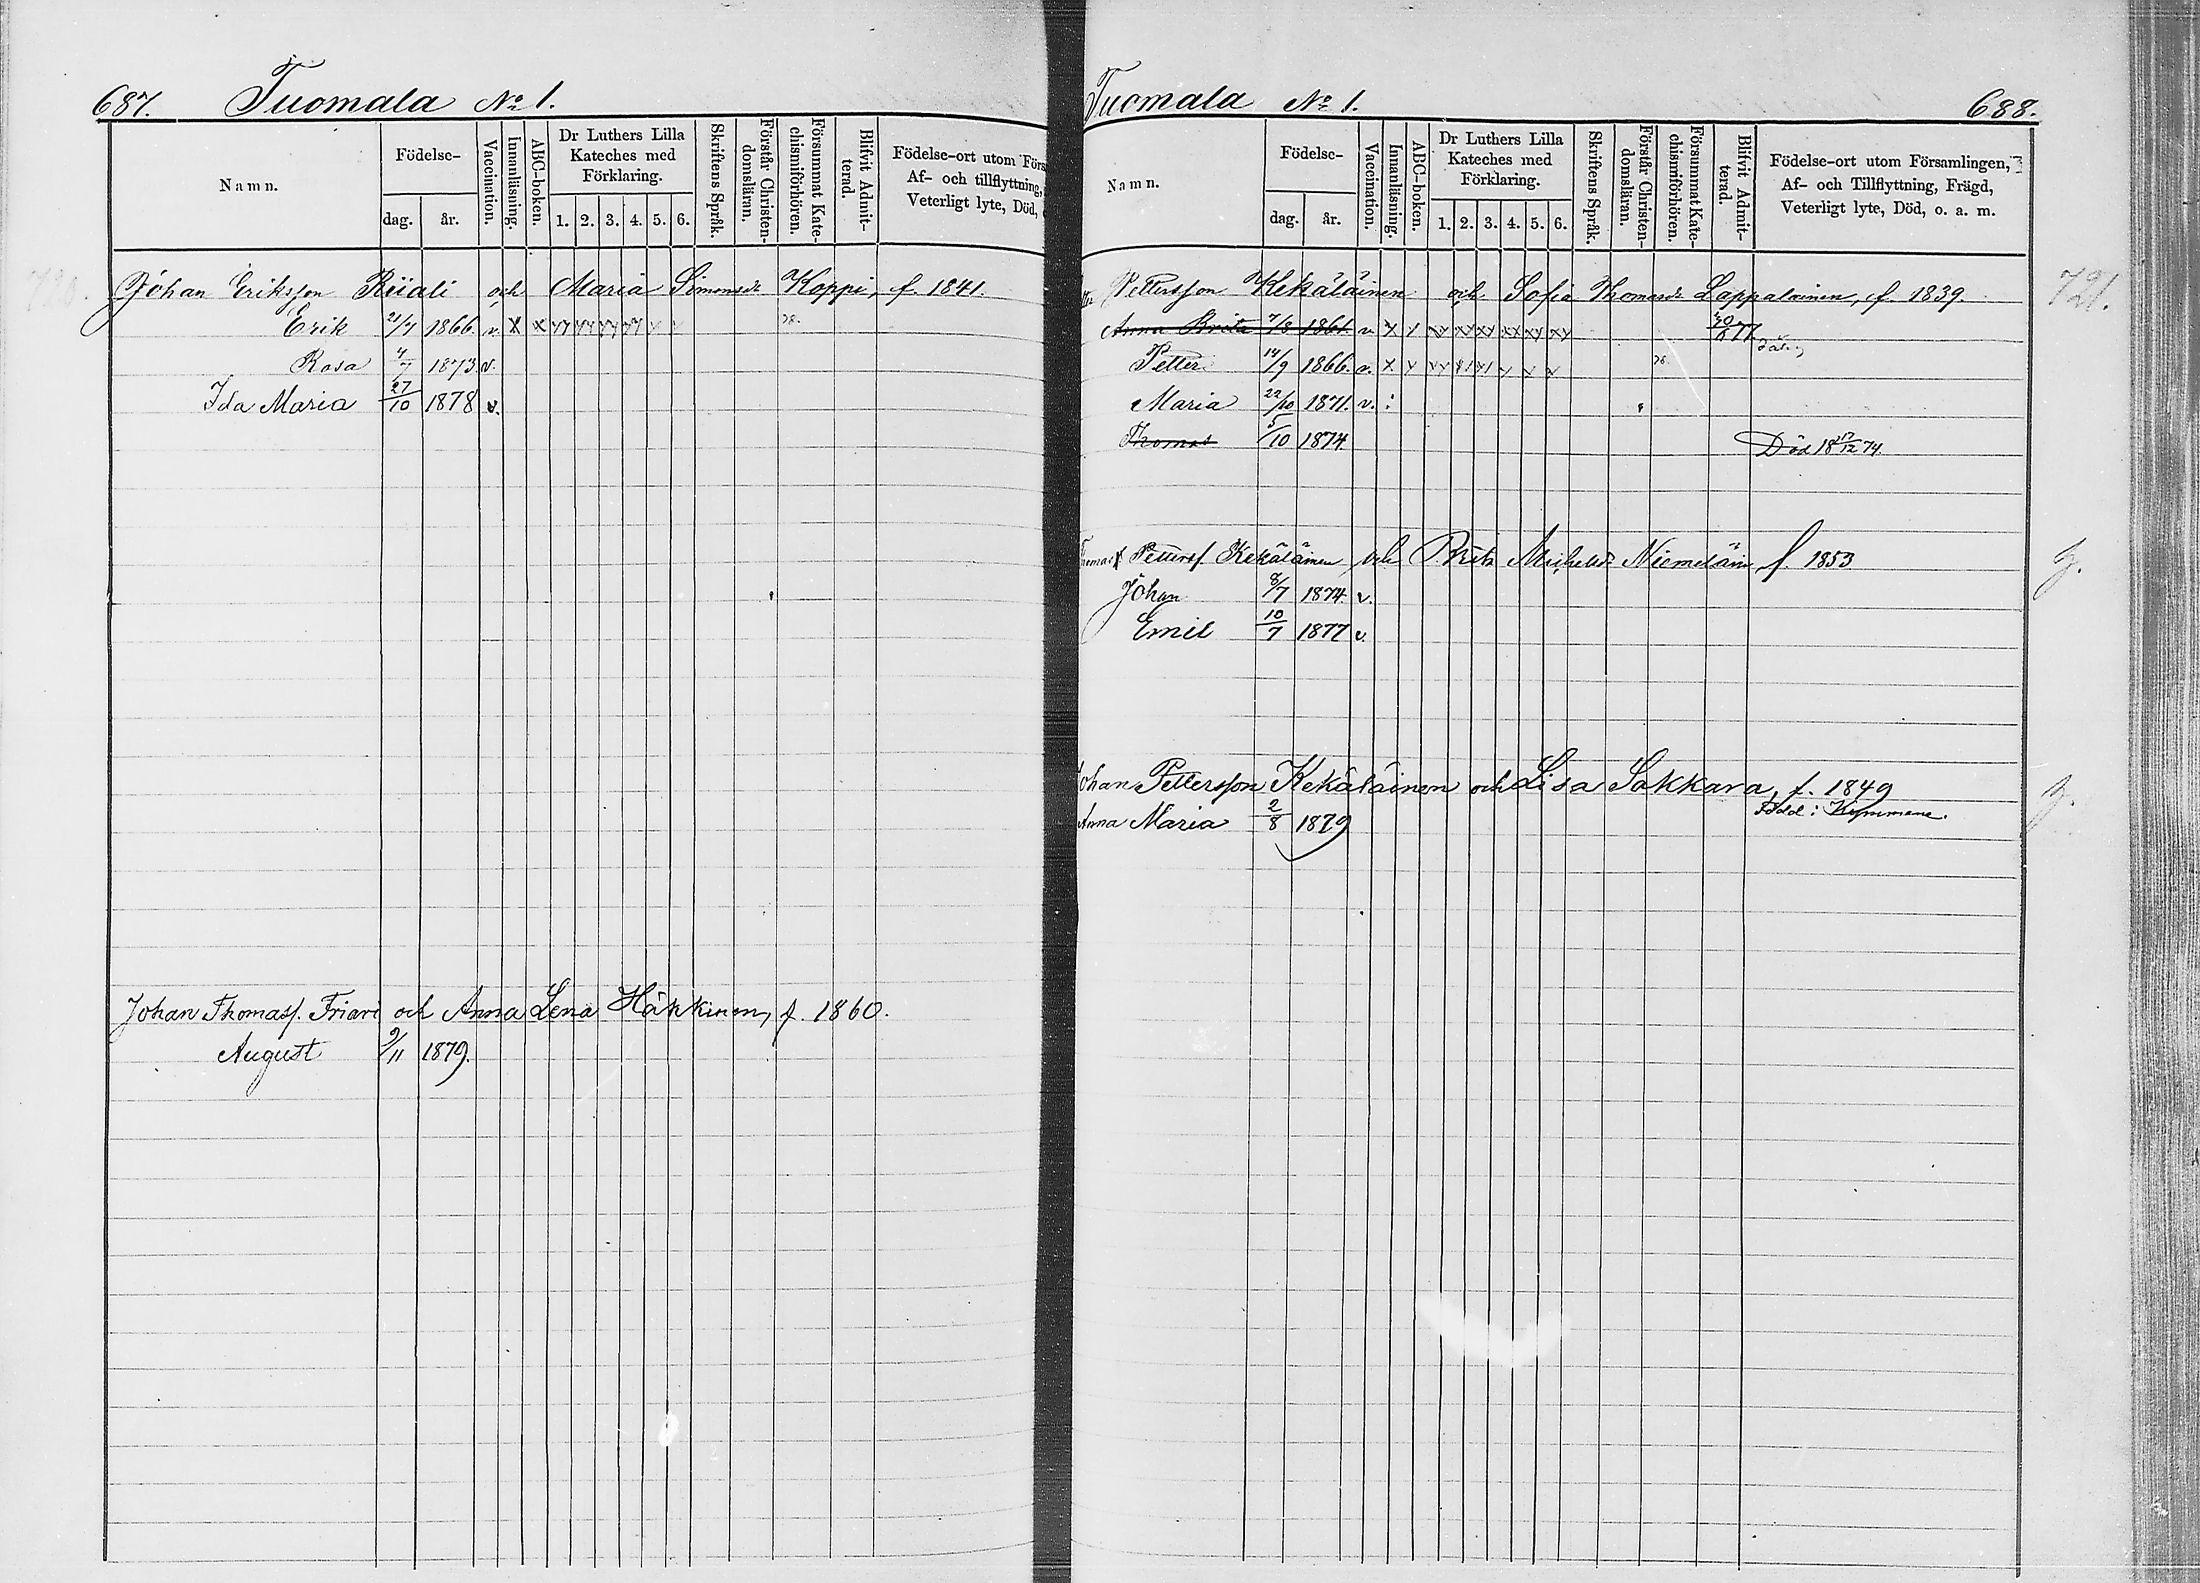 687. Tuomala No 1.
Namn. Födelse- dag. år. Vaccination. Innanläsning. ABC-boken. Dr Luthers Lilla Kateches med Förklaring. 1. 2. 3. 4. 5. 6. Skriftens Språk. Förstår Christen-domsläran. Försummat Kate-chismiförhören. Blifvit Admit-terad. Födelse-ort utom Förs Af- och tillflyttning, Veterligt lyte, Död,
Johan Eriksson Riiali och Maria Simonsdr Koppi, f. 1841.
Erik 21/7 1866. v. X X
Rosa 4/7 1873 v.
Ida Maria 27/10 1878 v.
Johan Thomass. Friari och Anna Lena Häkkinen, f. 1860.
August 9/11 1879.
Tuomala No 1. 688.
Namn. Födelse- dag. år. Vaccination. Innanläsning. ABC-boken. Dr Luthers Lilla Kateches med Förklaring. 1. 2. 3. 4. 5. 6. Skriftens Språk. Förstår Christen-domsläran. Försummat Kate-chismiförhören. Blifvit Admit-terad. Födelse-ort utom Församlingen, Af- och Tillflyttning, Frägd, Veterligt lyte, Död, o. a. m.
Pettersson Kekäläinen och Sofia Thomasdr Lappalainen, f. 1839. 721.
Anna Brita 7/8 1861. v.
Petter 14/9 1866. v.
Maria 22/10 1871. v.
Thomas 5/10 1874 Död 18 17/12 74.
Thomas Petterss. Kekäläinen och Brita Michelsdr Niemeläin f. 1853
Johan 8/7 1874 v.
Emil 10/7 1877 v.
Johan Pettersson Kekäläinen och Lisa Sakkara, f. 1849
Anna Maria 2/8 1879 Född i Kymmene.